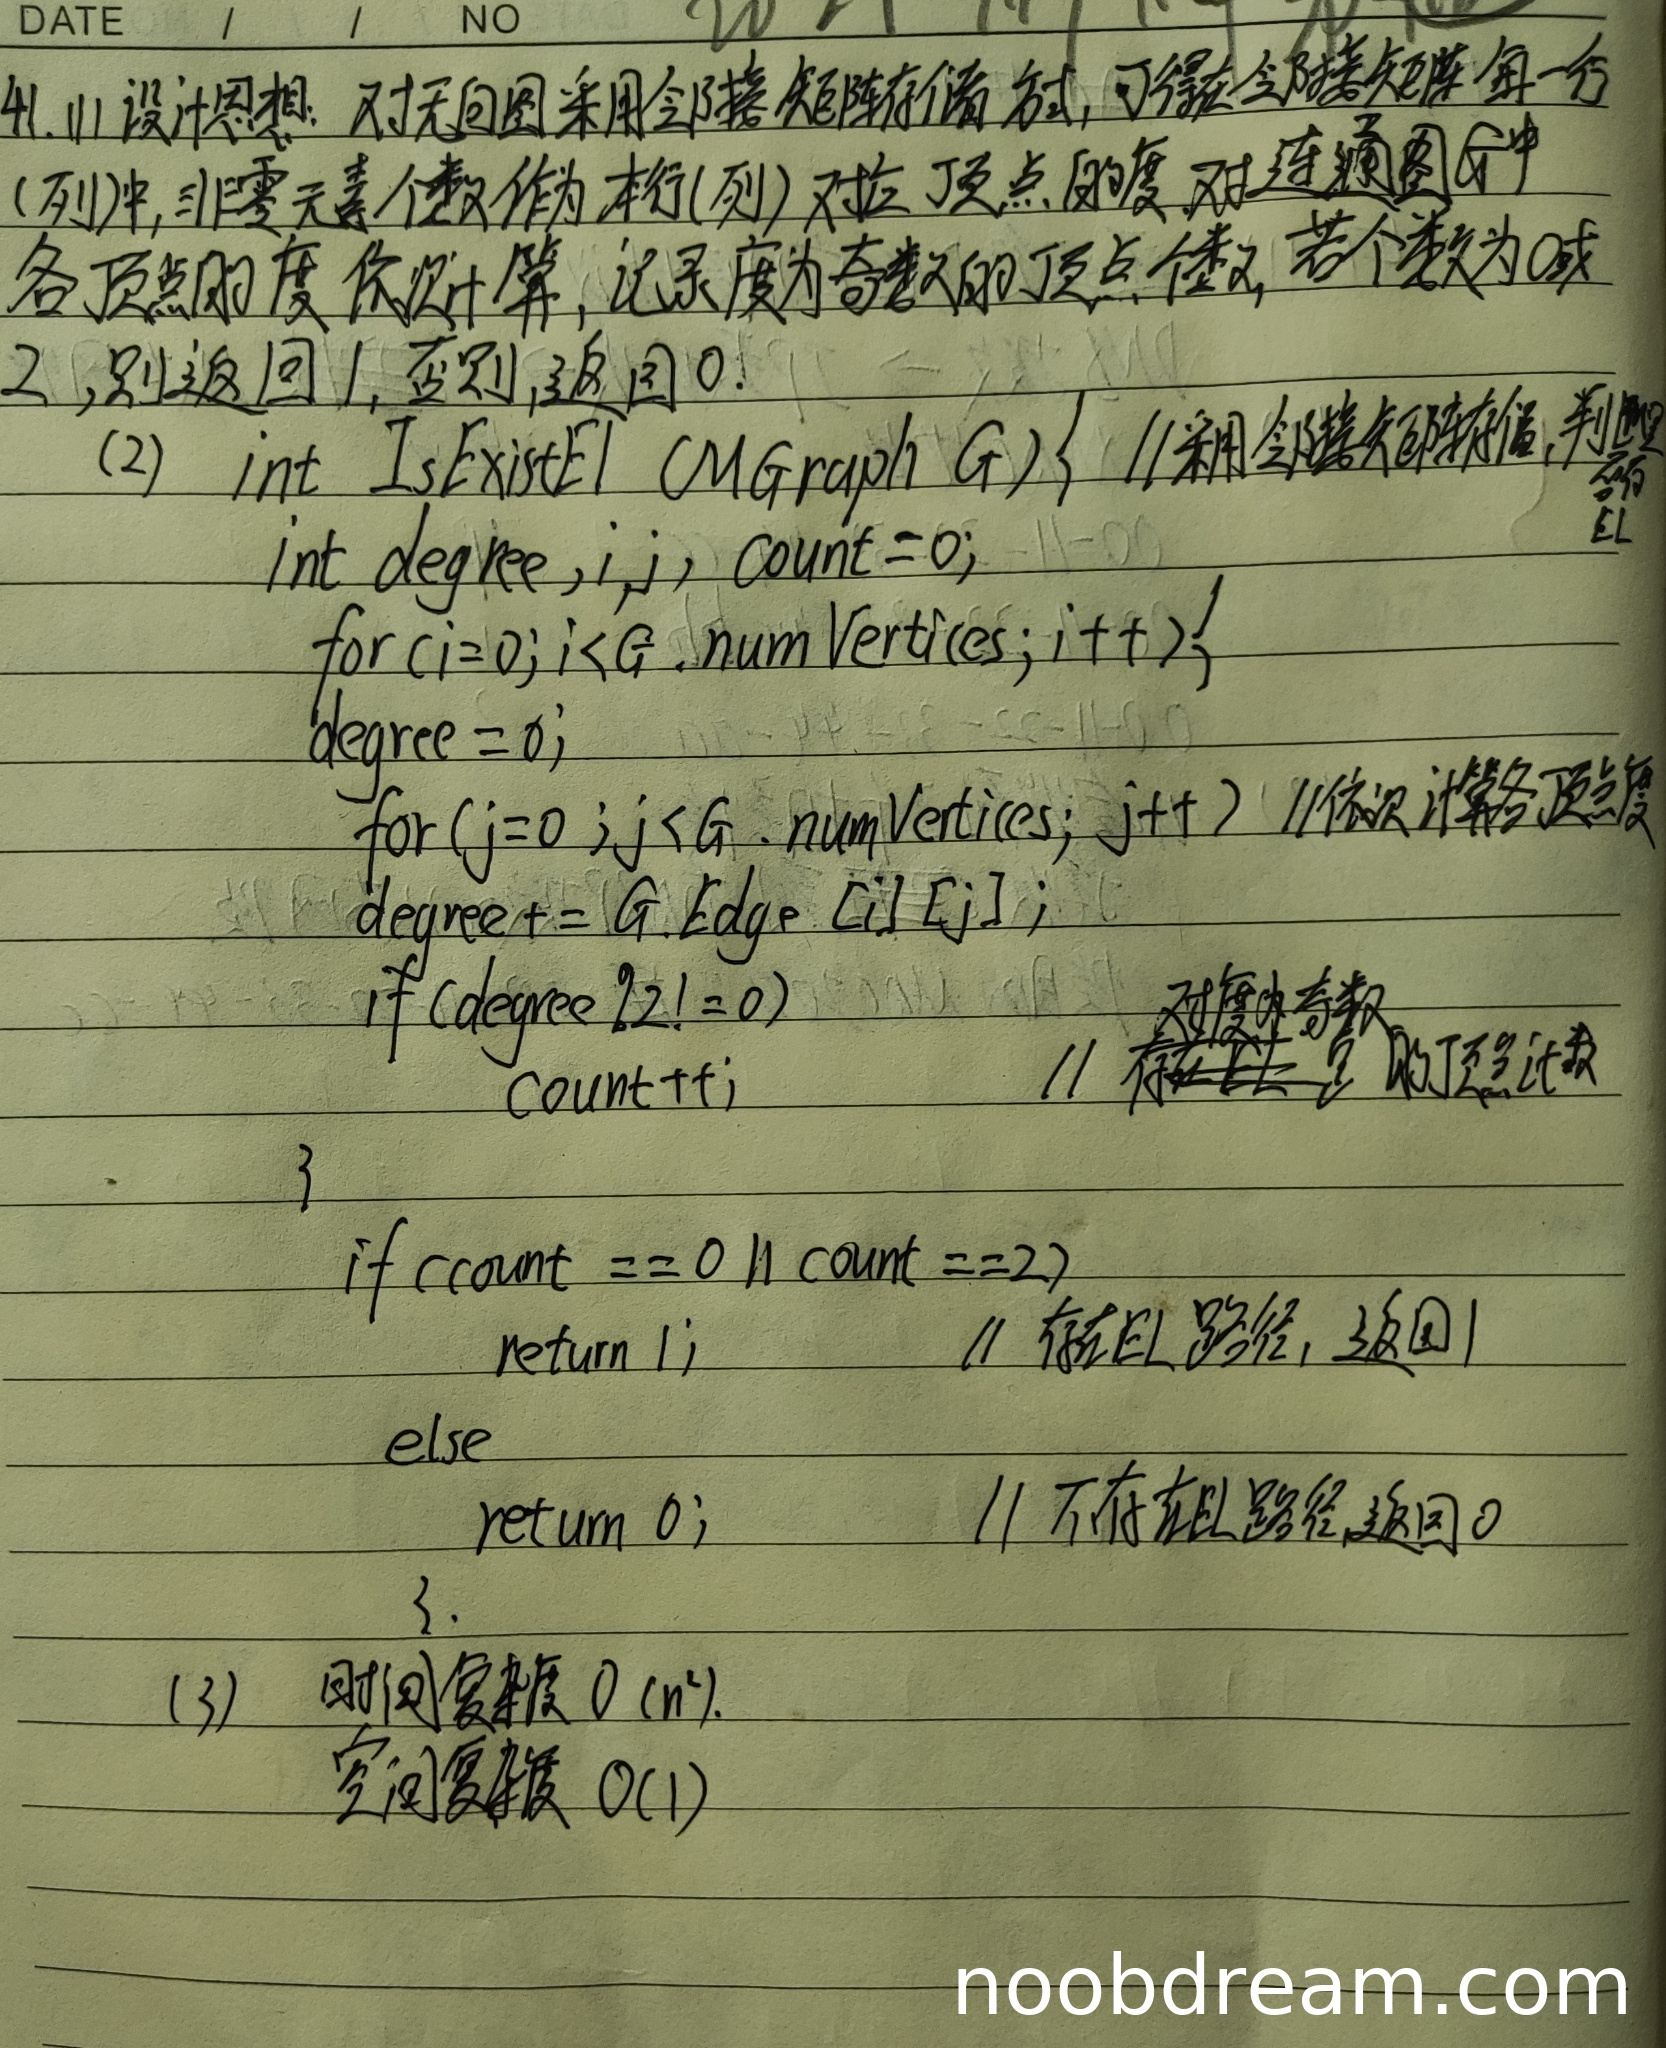 DATE / / NO
41. (1) 设计思想: 对无向图采用邻接矩阵存储方式, 可得在邻接矩阵每一行
(列)中, 非零元素个数作为本行(列)对应顶点的度. 对连通图G中
各顶点的度依次计算, 记录度为奇数的顶点个数, 若个数为0或
2, 则返回1, 否则, 返回0.
(2) int IsExistEl (MGraph G){ //采用邻接矩阵存储, 判断是否有EL
int degree, i, j, count=0;
for(i=0; i<G.numVertices; i++){
degree=0;
for(j=0; j<G.numVertices; j++) //依次计算各顶点度
degree+=G.Edge[i][j];
if(degree%2!=0)
count++; // 对度为奇数的顶点计数
}
if(count==0||count==2)
return 1; // 存在EL路径, 返回1
else
return 0; // 不存在EL路径, 返回0
}.
(3) 时间复杂度 O(n²).
空间复杂度 O(1)
noobdream.com